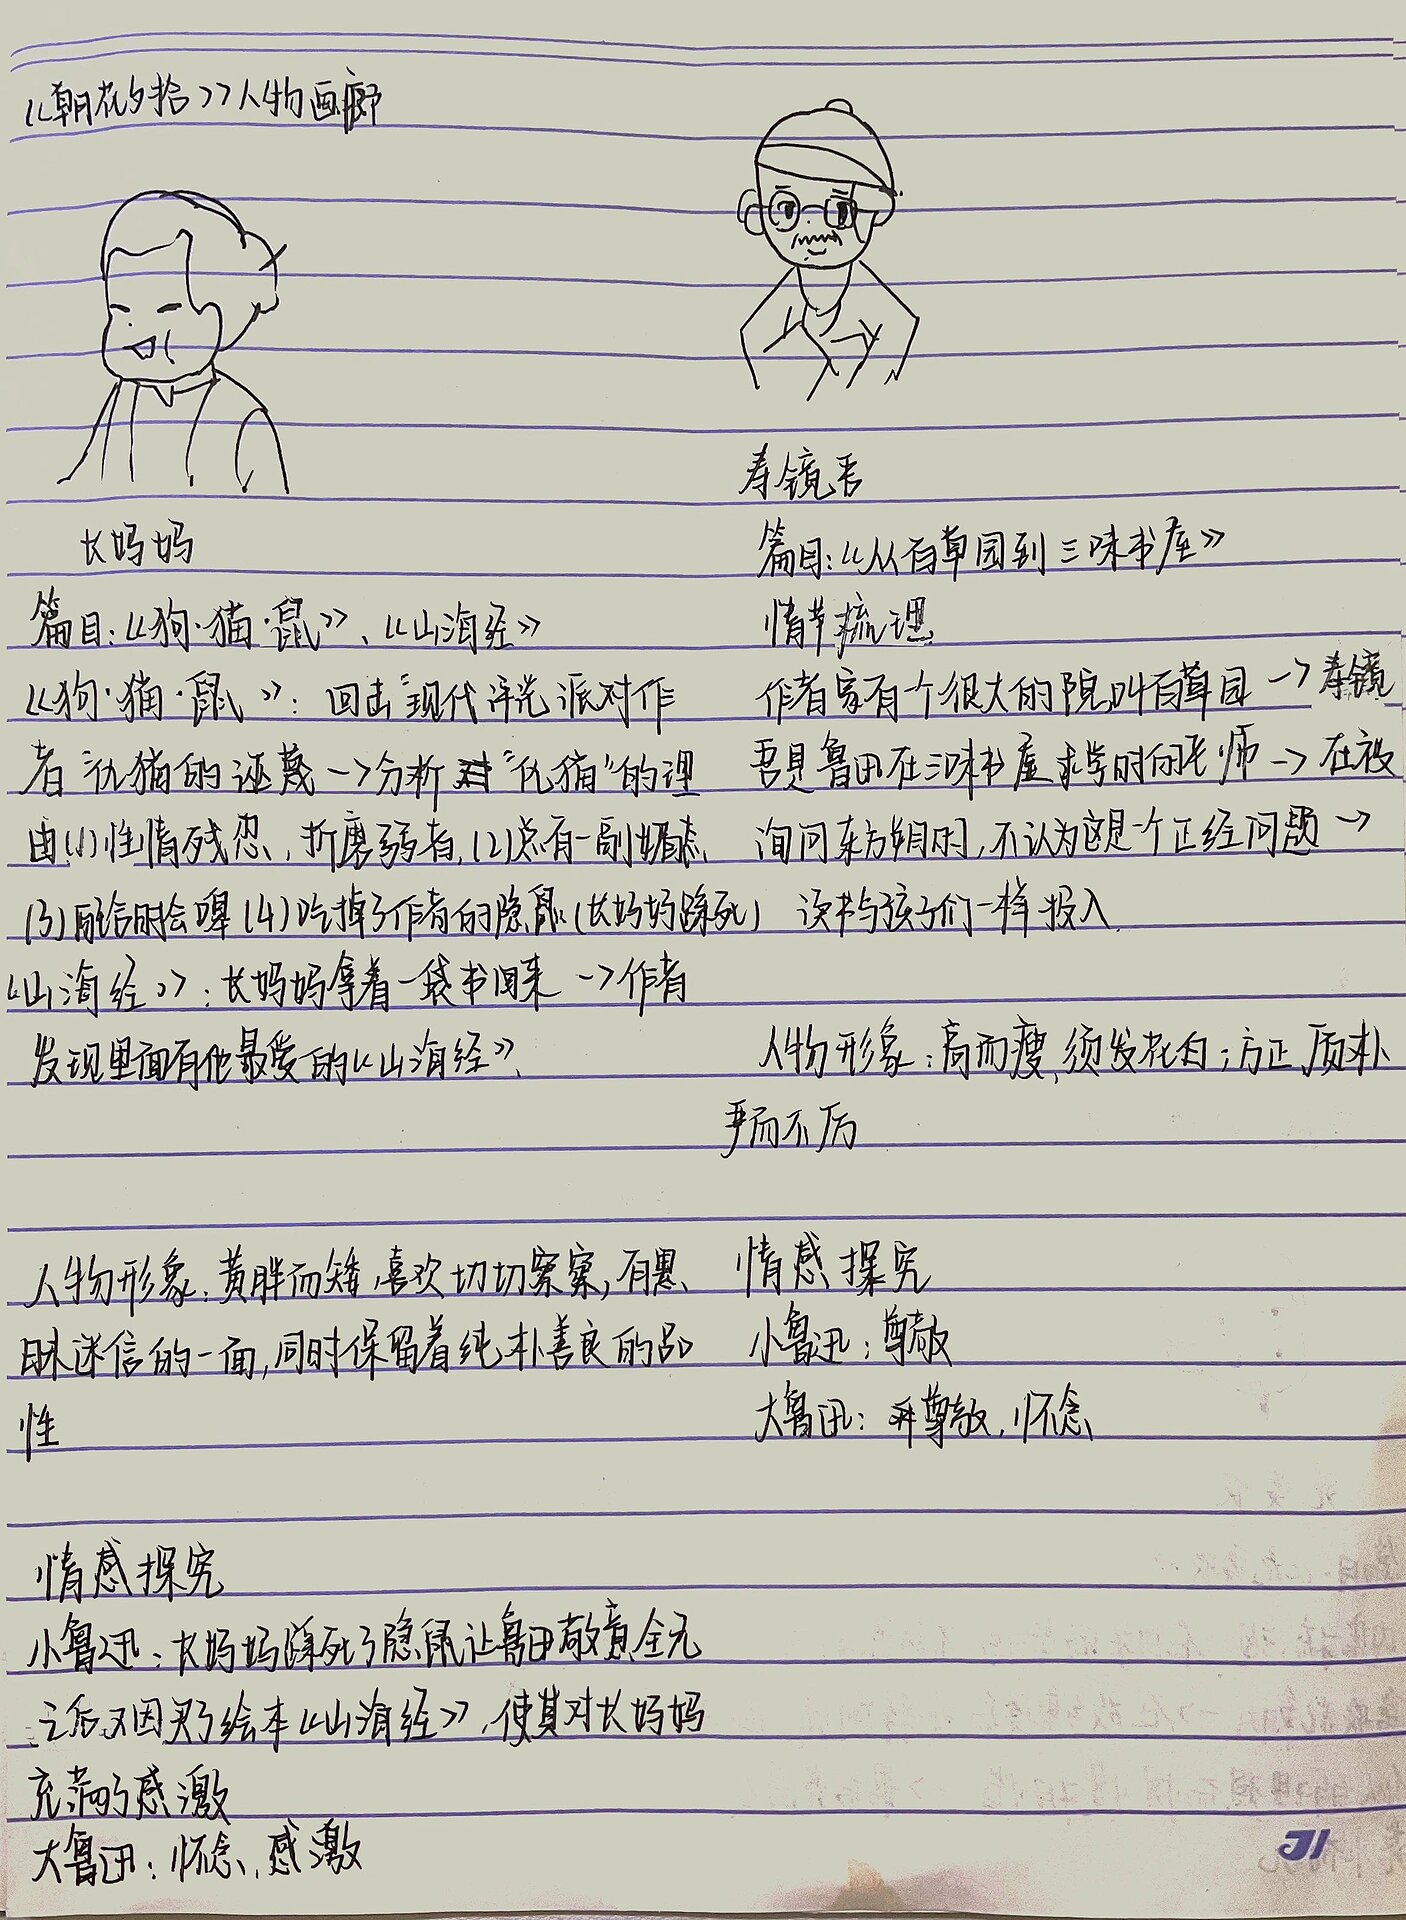 《朝花夕拾》人物画廊
长妈妈
篇目:《狗·猫·鼠》、《山海经》
《狗·猫·鼠》:回击"现代评论派对作
者"仇猫的诬蔑→分析"仇猫"的理
由(1)性情残忍,折磨弱者,(2)总有一副媚态
(3)配合时会嗥(4)吃掉了作者的隐鼠(长妈妈踩死)
《山海经》:长妈妈拿着一袋书回来→作者
发现里面有他最爱的《山海经》.
人物形象:黄胖而矮,喜欢切切察察,有愚
昧迷信的一面,同时保留着纯朴善良的品
性
情感探究
小鲁迅:长妈妈踩死了隐鼠让鲁迅敬意全无
之后又因买了绘本《山海经》,使其对长妈妈
充满了感激
大鲁迅:怀念,感激
寿镜吾
篇目:《从百草园到三味书屋》
情节梳理
作者家有个很大的院,叫百草园→寿镜
吾是鲁迅在三味书屋求学时的老师→在被
询问东方朔时,不认为这是一个正经问题→
读书与孩子们一样投入.
人物形象:高而瘦,须发花白;方正,质朴
严而不厉
情感探究
小鲁迅:尊敬
大鲁迅:尊敬,怀念